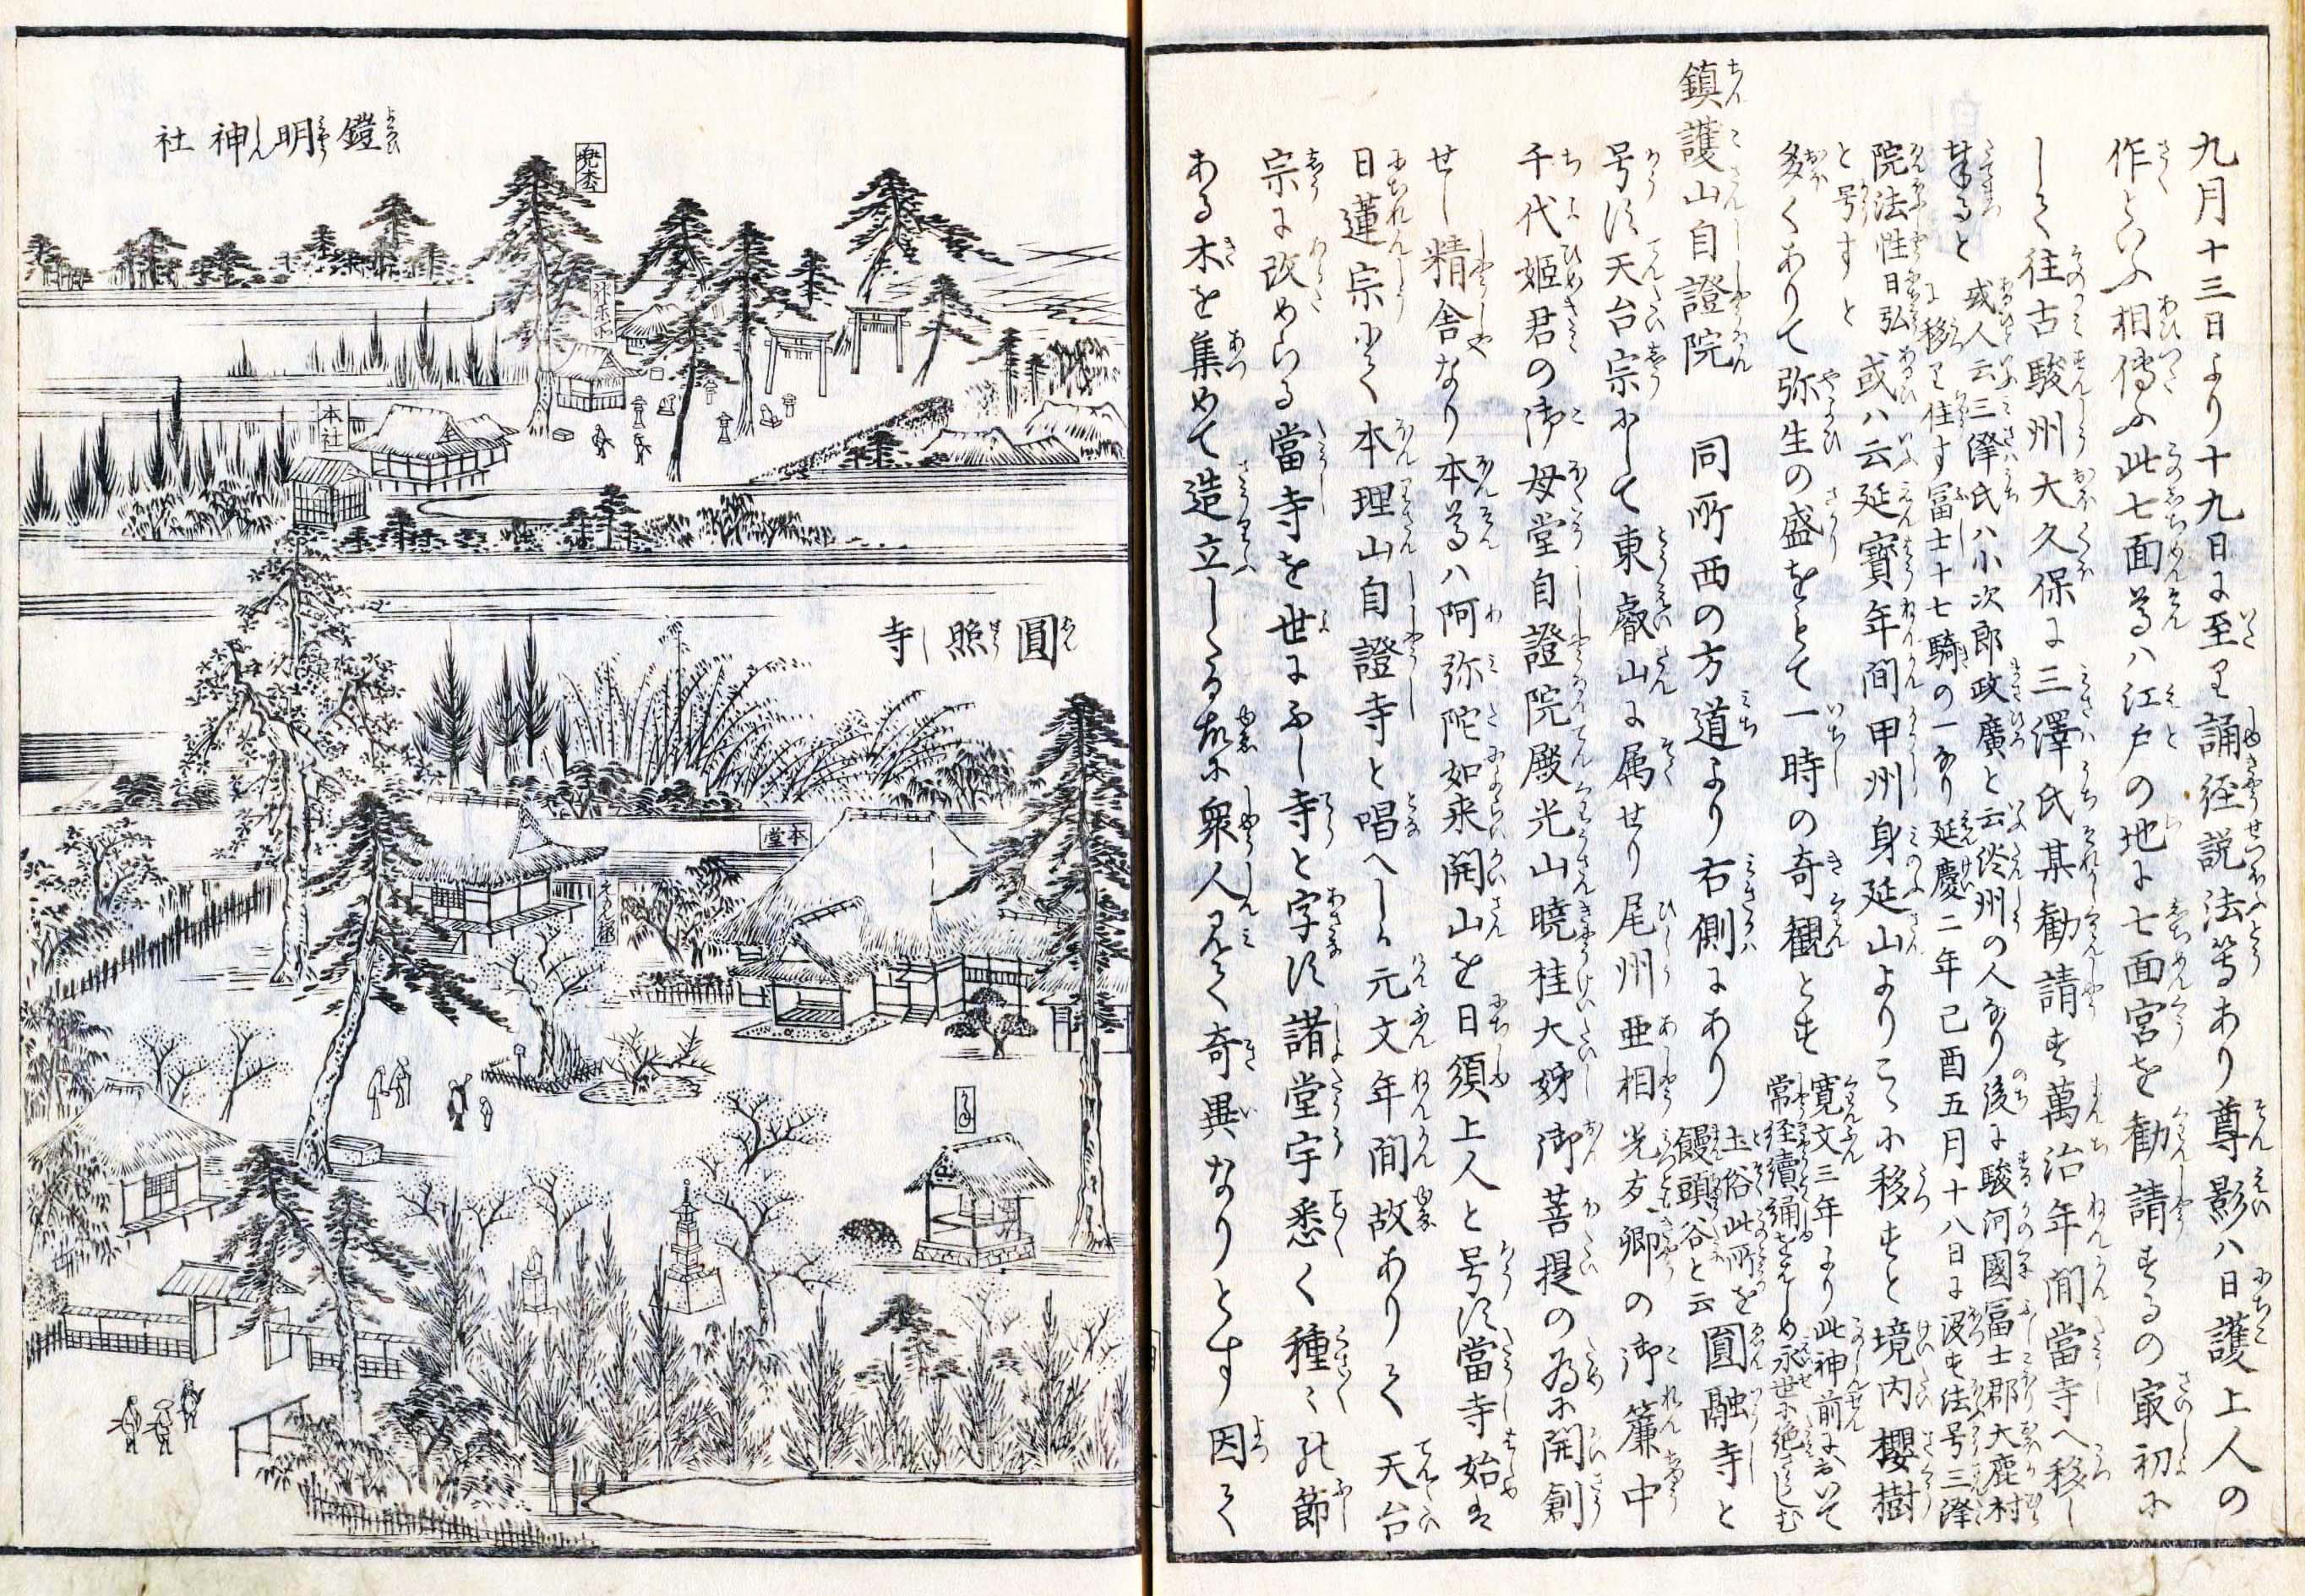 九月十三日より十九日に至り誦経説法等あり尊影ハ日護上人の
作といふ相傳ふ此七面尊ハ江戸の地に七面宮を勧請するの冣初に
して往古駿州大久保に三澤氏某勧請す萬治年間當寺へ移し
奉ると
或人云三澤氏ハ小次郎政廣と云
州の人なり後に駿河國冨士郡大鹿村
に移り住す冨士十七騎の一なり延慶二年己酉五月十八日に没す法号三澤
院法性日弘
と号すと
或ハ云延寳年間甲州身延山よりこゝに移すと境内櫻樹
多くありて弥生の盛をもて一時の奇観とす
寛文三年より此神前に於いて
常経讀誦をはしめ永世に絶さらしむ
鎮護山自證院 同所西の方道より右側にあり
土俗此所を
饅頭谷と云
圓融寺と
号す天台宗にして東叡山に属せり尾州亜相光友卿の御簾中
千代姫君の御母堂自證院殿光山暁桂大姉御菩提の為に開創
せし精舎なり本尊ハ阿弥陀如来開山を日須上人と号す當寺始は
日蓮宗にて本理山自證寺と唱へしか元文年間故ありて天台
宗に改めらる當寺を世にふし寺と字す諸堂宇悉く種々の節
ある木を集めて造立したる故に衆人見て奇異なりとす因て
鎧明神社
兜松
本社
圓照寺
本堂
えんま堂
かね